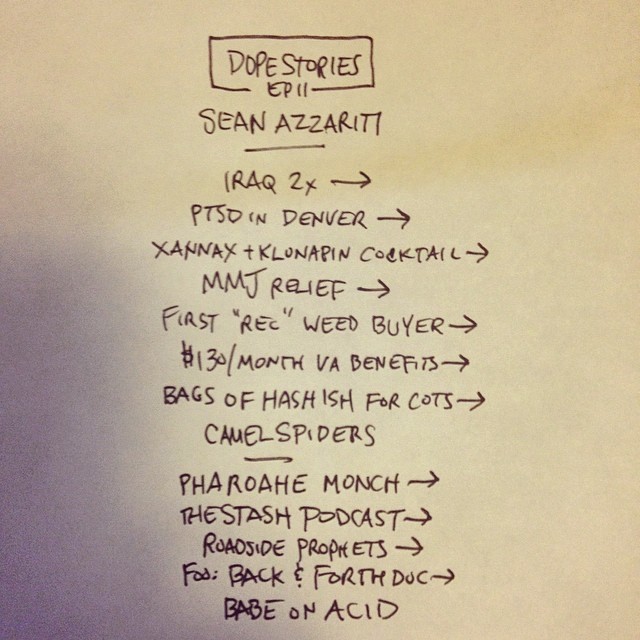 DOPE STORIES
EP 11
SEAN AZZARITI
IRAQ 2x →
PTSD IN DENVER →
XANNAX + KLONAPIN COCKTAIL →
MMJ RELIEF →
FIRST "REC" WEED BUYER →
$130/MONTH VA BENEFITS →
BAGS OF HASHISH FOR COTS →
CAMEL SPIDERS
PHAROAHE MONCH →
THE STASH PODCAST →
ROADSIDE PROPHETS →
FOO: BACK & FORTH DOC →
BABE ON ACID